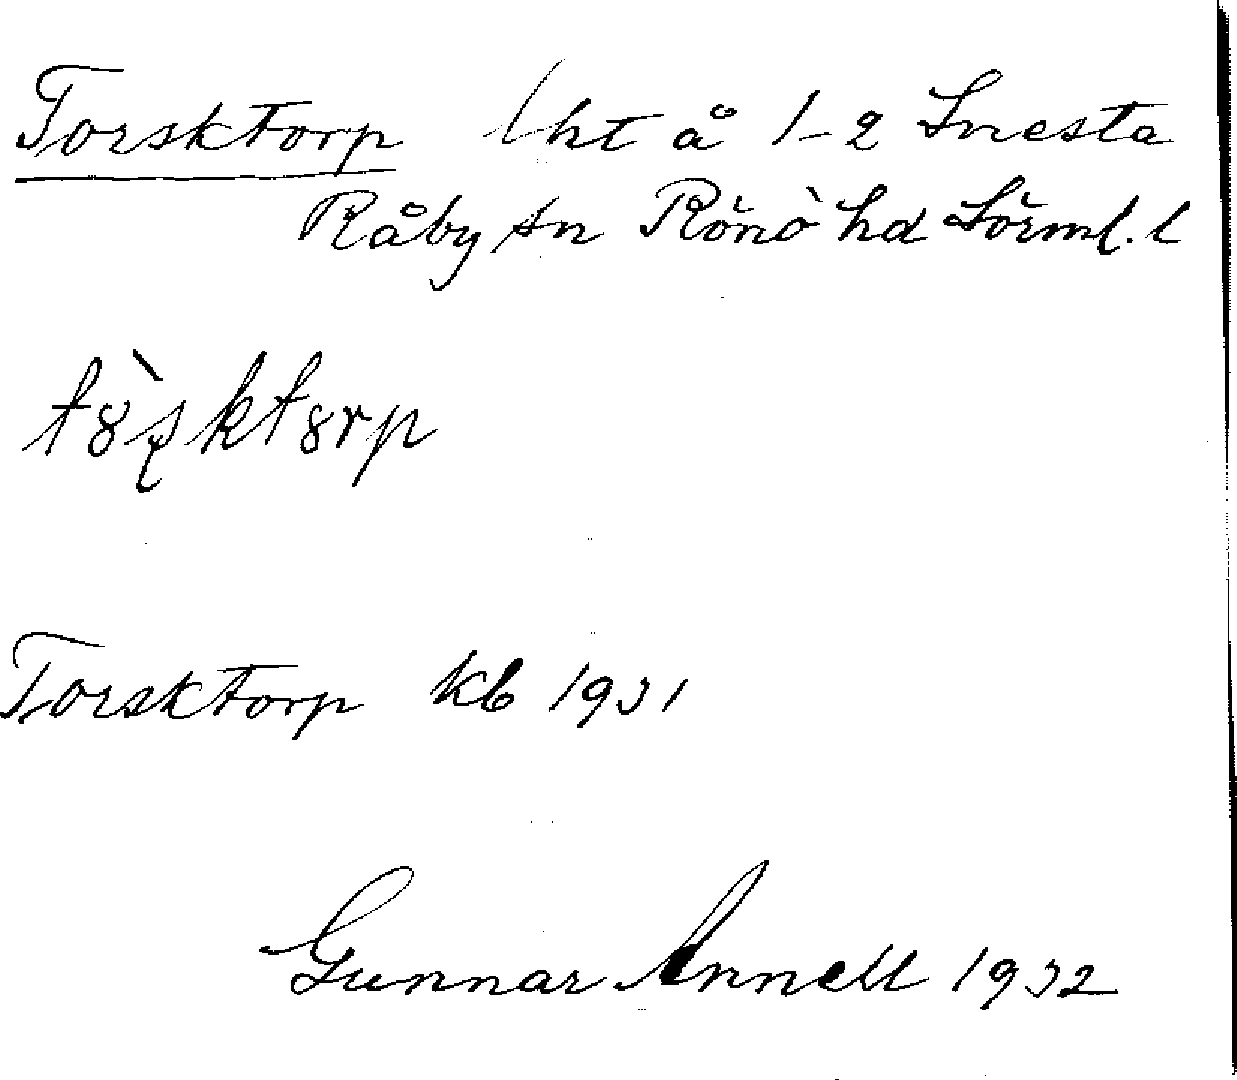 Torsktorp lht å 1-2 Snesta
Råby sn Rönö hd Sörml. l
tȣ̀ʂktȣrp
Torsktorp kb 1931
Gunnar Annell 1932